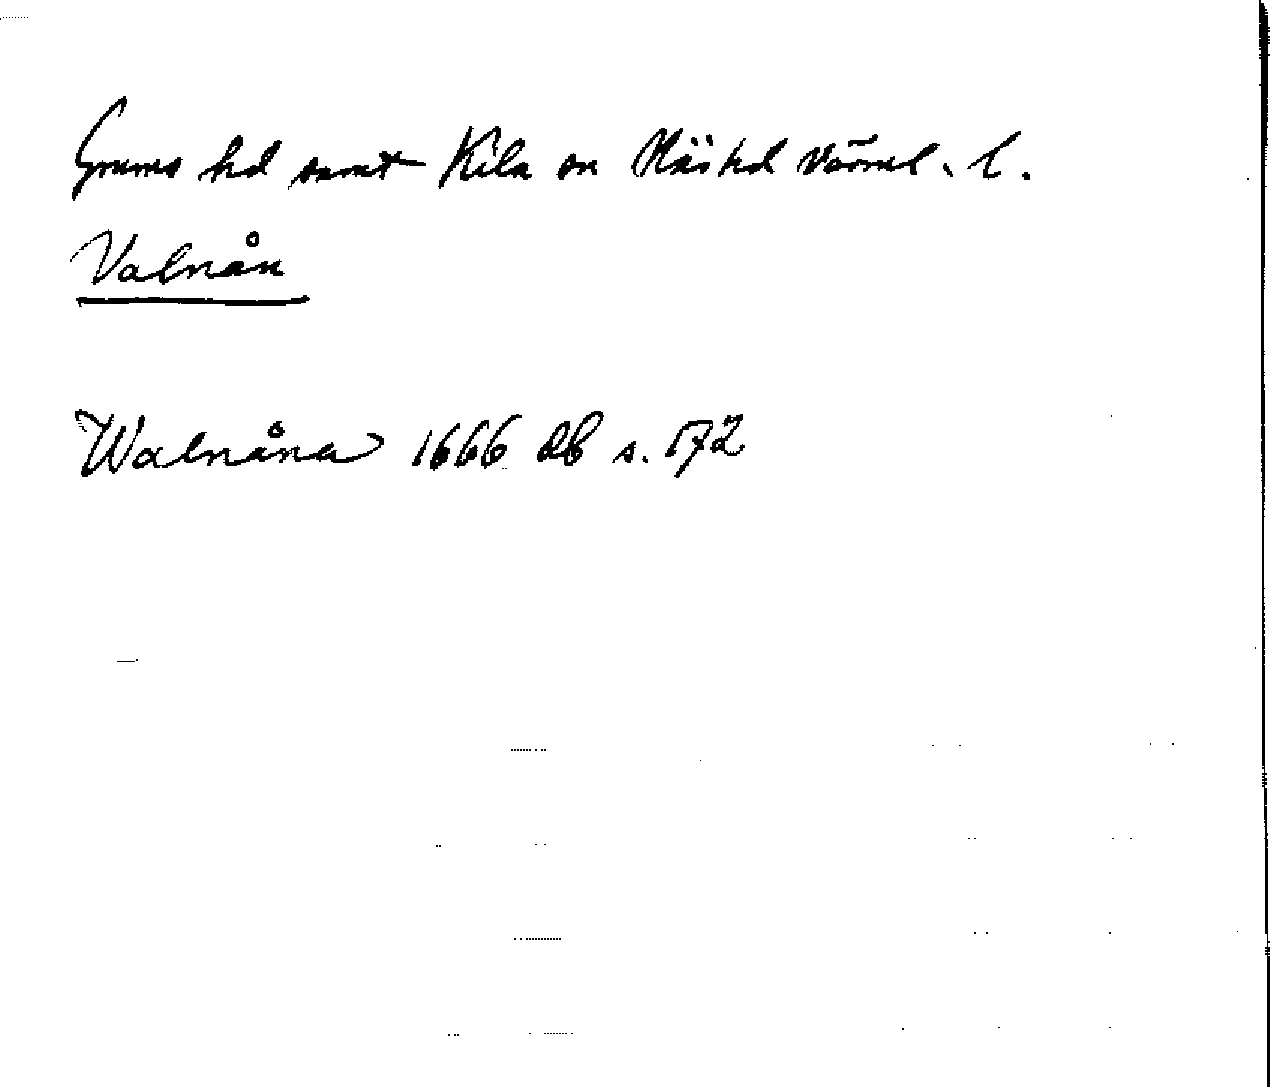 Grums hd samt Kila sn Näs hd Värml. l.
Valnån
Walnåna 1666 db s. 572